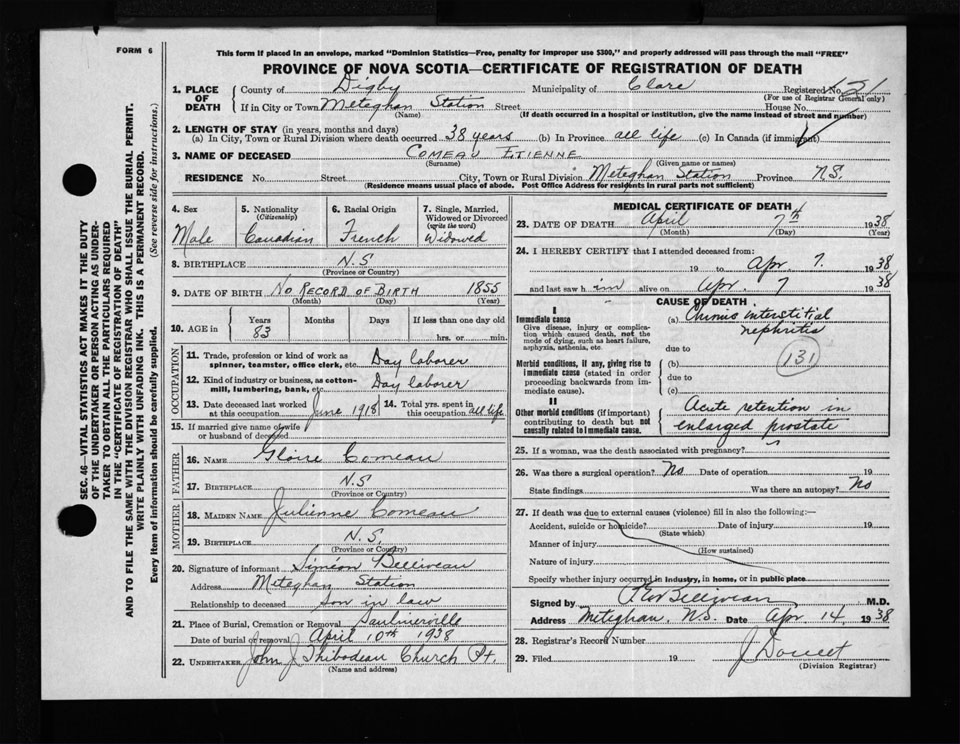 FORM 6
This form if placed in an envelope, marked "Dominion Statistics—Free, penalty for improper use $300," and properly addressed will pass through the mail "FREE"
PROVINCE OF NOVA SCOTIA—CERTIFICATE OF REGISTRATION OF DEATH
SEC. 46—VITAL STATISTICS ACT MAKES IT THE DUTY
OF THE UNDERTAKER OR PERSON ACTING AS UNDER-
TAKER TO OBTAIN ALL THE PARTICULARS REQUIRED
IN THE "CERTIFICATE OF REGISTRATION OF DEATH"
AND TO FILE THE SAME WITH THE DIVISION REGISTRAR WHO SHALL ISSUE THE BURIAL PERMIT.
WRITE PLAINLY WITH UNFADING INK. THIS IS A PERMANENT RECORD.
Every item of information should be carefully supplied. (See reverse side for instructions.)
1. PLACE OF DEATH
County of Digby Municipality of Clare Registered No. 21
(For use of Registrar General only)
If in City or Town Meteghan Station Street House No.
(Name) (If death occurred in a hospital or institution, give the name instead of street and number)
2. LENGTH OF STAY (in years, months and days)
(a) In City, Town or Rural Division where death occurred 38 years (b) In Province all life (c) In Canada (if immigrant)
3. NAME OF DECEASED COMEAU ETIENNE
(Surname) (Given name or names)
RESIDENCE No. Street City, Town or Rural Division Meteghan Station Province N.S.
(Residence means usual place of abode. Post Office Address for residents in rural parts not sufficient)
4. Sex
Male
5. Nationality
(Citizenship)
Canadian
6. Racial Origin
French
7. Single, Married,
Widowed or Divorced
(write the word)
Widowed
8. BIRTHPLACE N.S
(Province or Country)
9. DATE OF BIRTH NO RECORD OF BIRTH 1855
(Month) (Day) (Year)
10. AGE in Years Months Days If less than one day old
83 hrs. or min.
OCCUPATION
11. Trade, profession or kind of work as
spinner, teamster, office clerk, etc. Day laborer
12. Kind of industry or business, as cotton-
mill, lumbering, bank, etc. Day laborer
13. Date deceased last worked
at this occupation June 1918
14. Total yrs. spent in
this occupation all life
15. If married give name of wife
or husband of deceased
FATHER
16. NAME Comeau
17. BIRTHPLACE N.S
(Province or Country)
MOTHER
18. MAIDEN NAME Julienne Comeau
19. BIRTHPLACE N.S.
(Province or Country)
20. Signature of informant Siméon Belliveau
Address Meteghan Station
Relationship to deceased Son in law
21. Place of Burial, Cremation or Removal Saulnierville
Date of burial or removal April 10th 1938
22. UNDERTAKER John J Thibodeau Church Pt.
(Name and address)
MEDICAL CERTIFICATE OF DEATH
23. DATE OF DEATH April 7th 1938
(Month) (Day) (Year)
24. I HEREBY CERTIFY that I attended deceased from:
19 to Apr. 7. 1938
and last saw him alive on Apr. 7 1938
CAUSE OF DEATH
I
Immediate cause
Give disease, injury or complica-
tion which caused death, not the
mode of dying, such as heart failure,
asphyxia, asthenia, etc.
(a) Chronic interstitial
nephritis
due to
131
Morbid conditions, if any, giving rise to
immediate cause (stated in order
proceeding backwards from im-
mediate cause).
(b)
due to
(c)
II
Other morbid conditions (if important)
contributing to death but not
causally related to immediate cause.
Acute retention in
enlarged prostate
25. If a woman, was the death associated with pregnancy?
26. Was there a surgical operation? No Date of operation 19
State findings Was there an autopsy? No
27. If death was due to external causes (violence) fill in also the following:—
Accident, suicide or homicide? Date of injury 19
(State which)
Manner of injury
(How sustained)
Nature of injury
Specify whether injury occurred in industry, in home, or in public place
Signed by Belliveau M.D.
Address Meteghan, N.S. Date Apr 14, 1938
28. Registrar's Record Number
29. Filed 19 J Doucet
(Division Registrar)